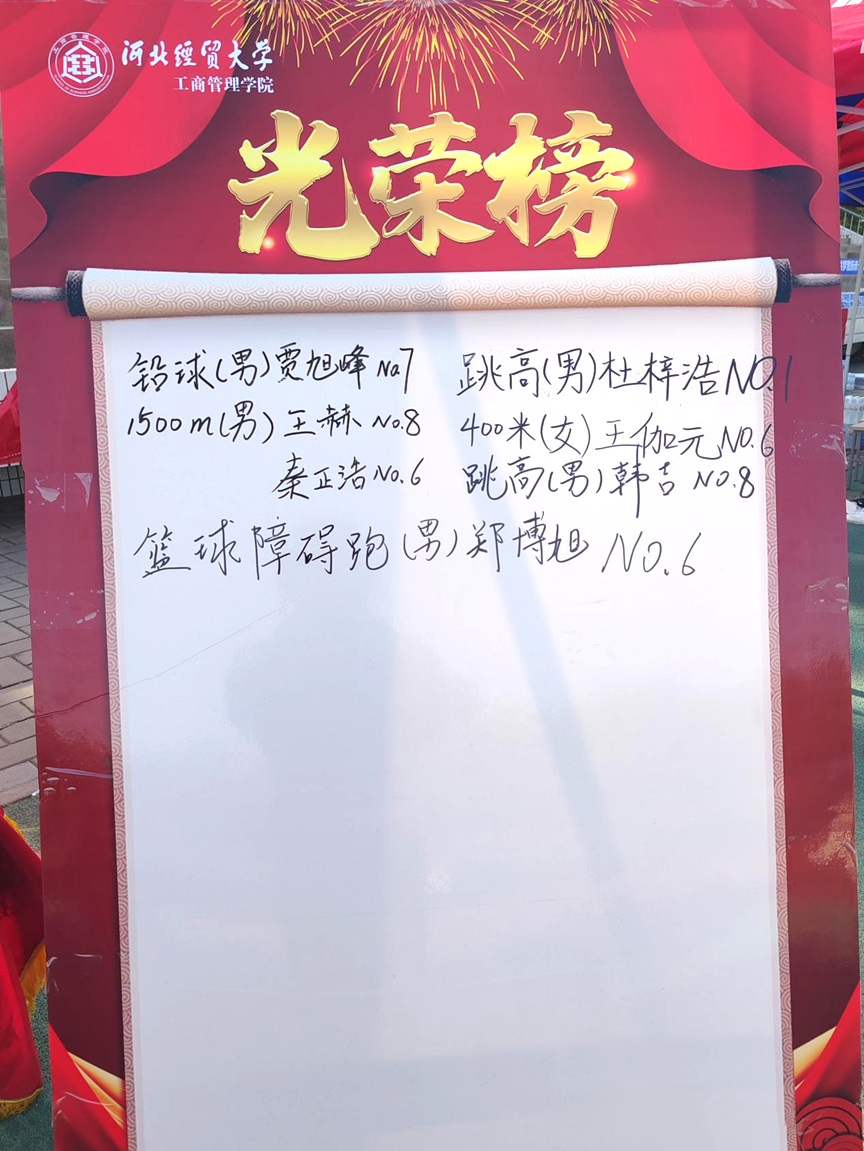 河北经贸大学
工商管理学院
光荣榜
铅球(男)贾旭峰 No7 跳高(男)杜梓浩 NO.1
1500m(男)王赫 No.8 400米(女)王伽元 NO.6
秦正浩 No.6 跳高(男)韩吉 NO.8
篮球障碍跑(男)郑博旭 NO.6